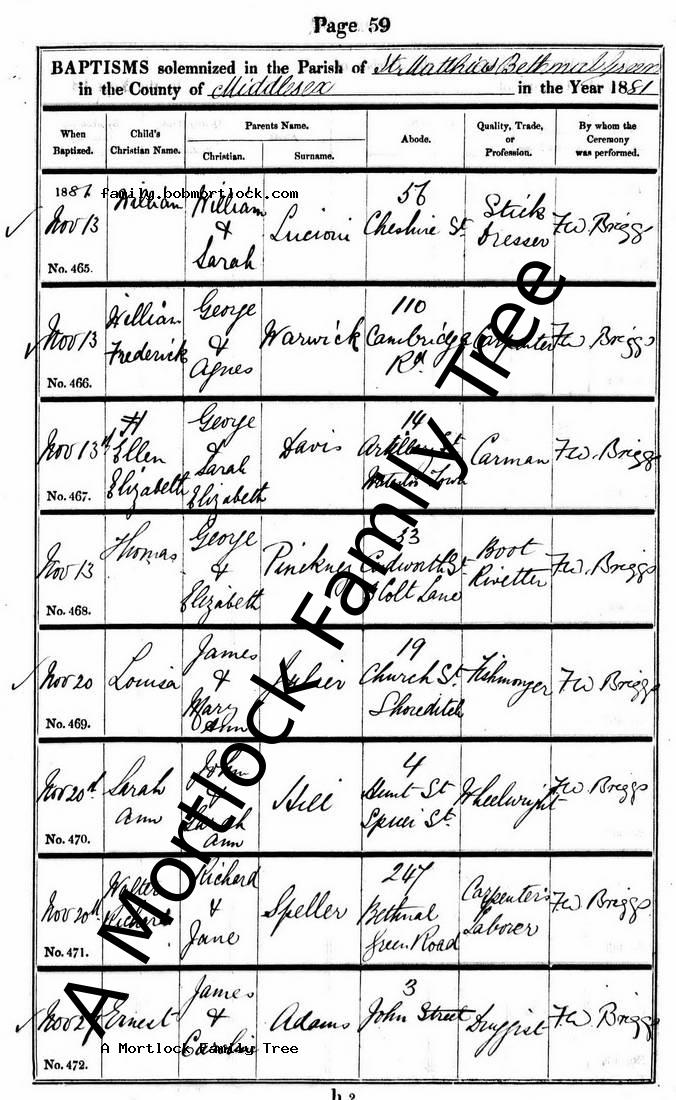 Page 59
BAPTISMS solemnized in the Parish of St. Matthias Bethnal Green
in the County of Middlesex in the Year 1881
When Baptized.
Child's Christian Name.
Parents Name.
Christian.
Surname.
Abode.
Quality, Trade, or Profession.
By whom the Ceremony was performed.
family.bobmortlock.com
1881
Nov 13
No. 465.
William
William
&
Sarah
Lucioni
56
Cheshire St.
Stick
Dresser
F.W. Briggs
Nov 13
No. 466.
William
Frederick
George
&
Agnes
Warwick
110
Cambridge
Rd.
Carpenter
F.W. Briggs
Nov 13th
No. 467.
Ellen
Elizabeth
George
&
Sarah
Elizabeth
Davis
14
Artillery St
Town
Carman
F.W. Briggs
Nov 13
No. 468.
Thomas
George
&
Elizabeth
Pinckney
53
Cudworth St
Holt Lane
Boot
Rivetter
F.W. Briggs
Nov 20
No. 469.
Louisa
James
&
Mary
Ann
19
Church St.
Shoreditch
Fishmonger
F.W. Briggs
Nov 20th
No. 470.
Sarah
Ann
John
&
Sarah
Ann
Hill
4
Hunt St
Spicer St.
Wheelwright
F.W. Briggs
Nov 20th
No. 471.
Walter
Richard
Richard
&
Jane
Speller
247
Bethnal
Green Road
Carpenter's
Labourer
F.W. Briggs
Nov
No. 472.
Ernest
James
&
Adams
3
John Street
Druggist
F.W. Briggs
A Mortlock Family Tree
A Mortlock Family Tree
h 2